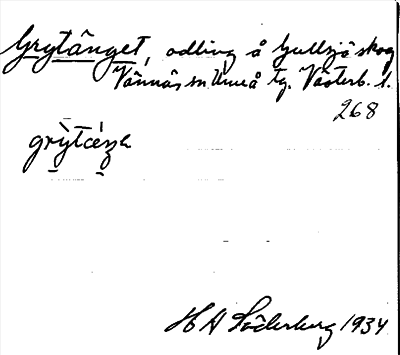 Grytänget, odling å Gullsjö skog
Vännäs sn Umeå tg. Västerb. l.
268
H A Söderberg 1934